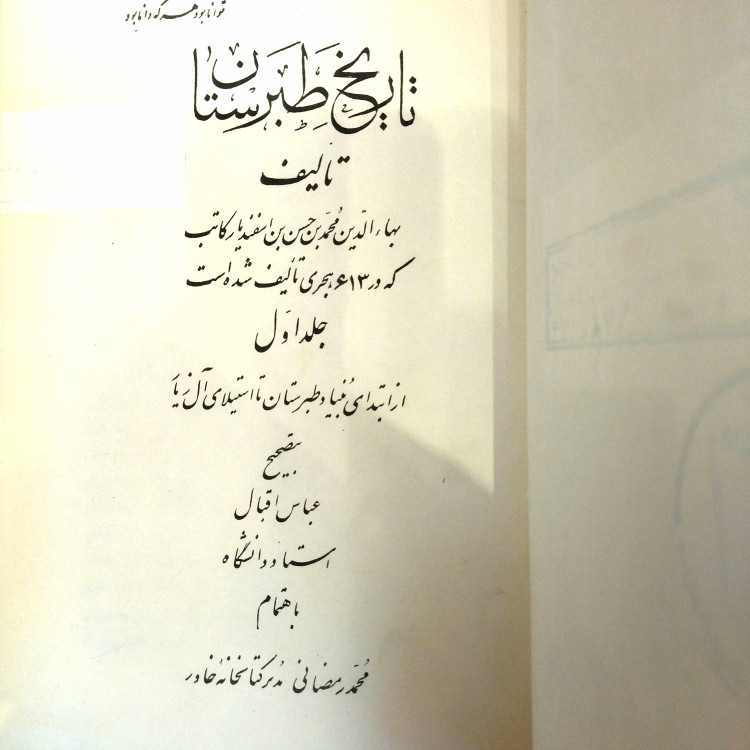 توانا بود هر که دانا بود
تاریخ طبرستان
تألیف
بهاء الدین محمد بن حسن بن اسفندیار کاتب
که در ۶۱۳ هجری تألیف شده است
جلد اول
از ابتدای بنیاد طبرستان تا استیلای آل زیار
بتصحیح
عباس اقبال
استاد دانشگاه
باهتمام
محمد رمضانی مدیر کتابخانهٔ خاور